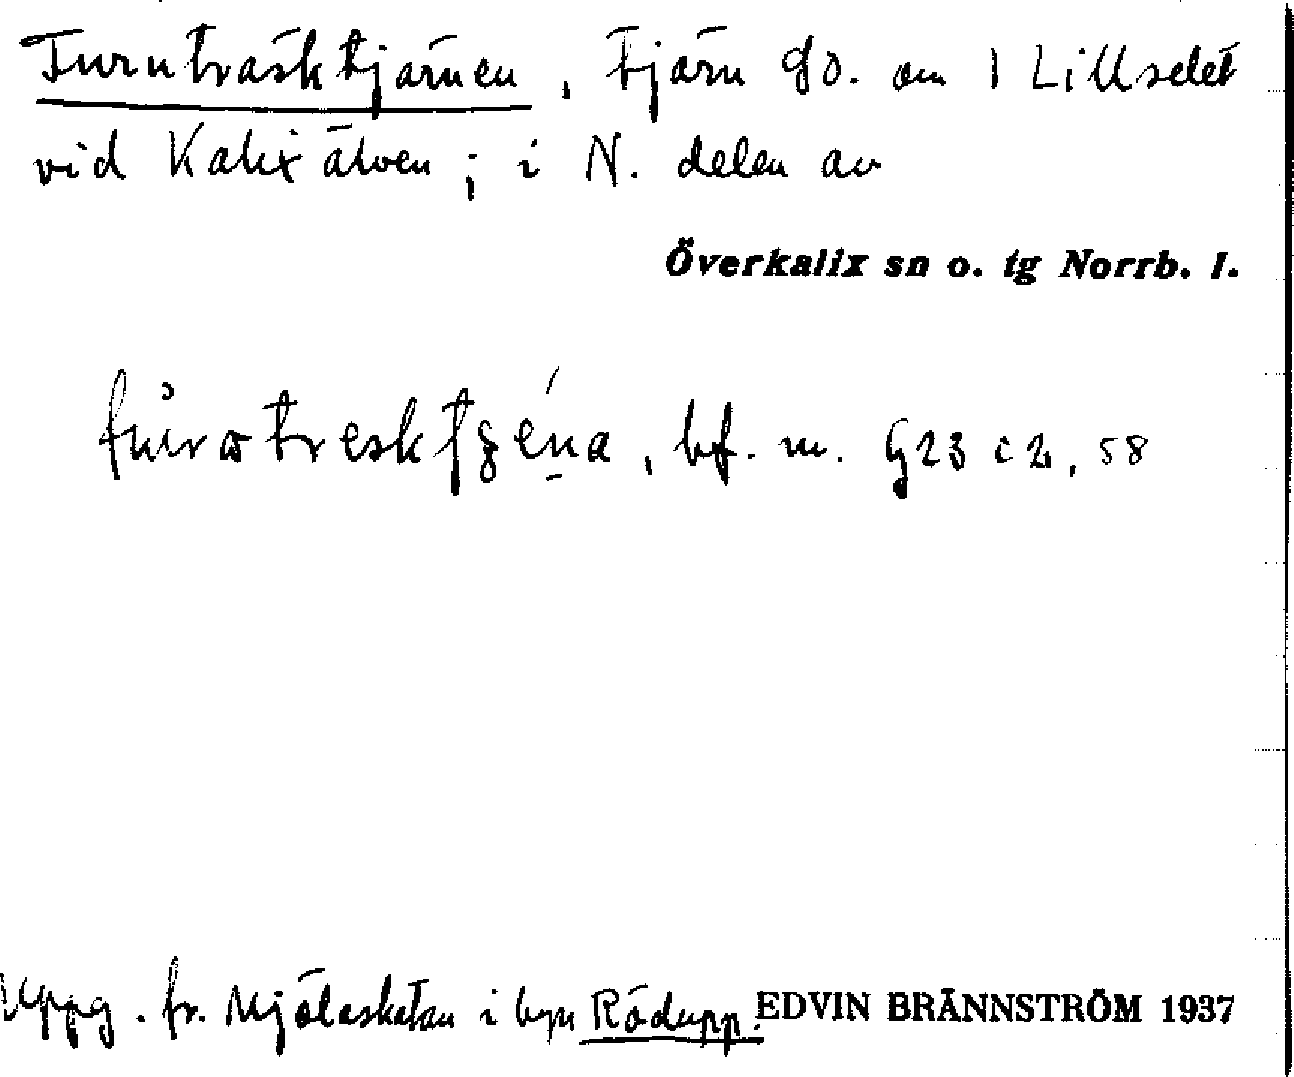 Furuträsktjärnen, tjärn SO. om 1 Lillselet
vid Kalixälven; i N. delen av
Överkalix sn o. tg Norrb. l.
bf. m. G23 c2, 58
Uppg. fr. i byn Rödupp. EDVIN BRÄNNSTRÖM 1937